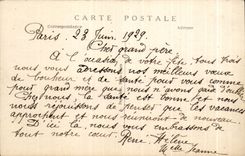 CARTE POSTALE
Correspondance
Paris. 23 Juin. 1929.
Cher grand père,
A l'occasion de votre fête tous trois
nous vous adressons nos meilleurs vœux
de bonheur et de santé pour vous comme
pour grand mère que nous n'avons garde d'oublier
Chez nous la santé est bonne et nous
nous réjouissons de penser que les vacances
approchent et nous réuniront de nouveau.
D'ici là nous vous embrassons de
tout notre cœur. René, Hélène
et Jeanne